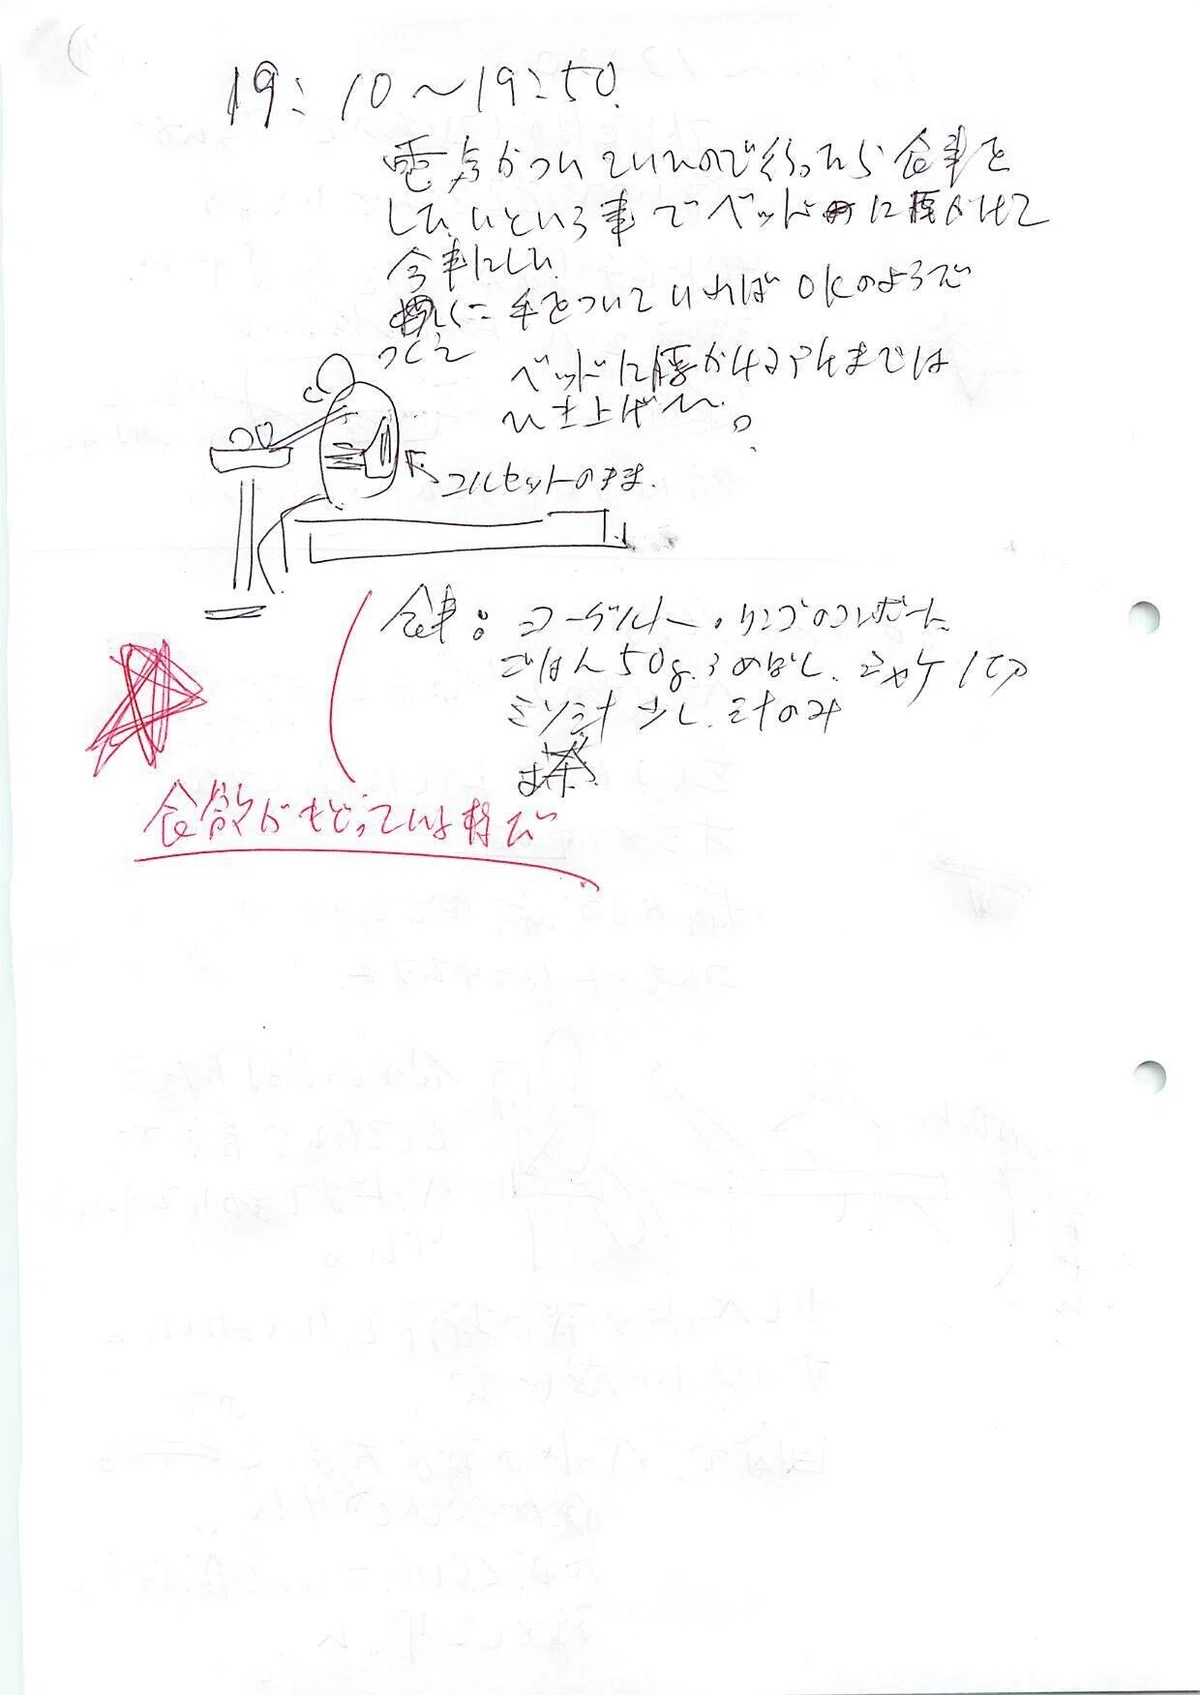 19:10〜19:50.
電気がついていたので行ったら食事を
したいという事でベッドに腰かけて
食事にした
手をついていればOKのようで
つくえ
ベッドに腰かける所までは
た。
コルセットのまま.
食事: ヨーグルト・リンゴのコンポート、
ごはん50g.うめぼし、シャケ1切
ミソ汁 少し、汁のみ
お茶
食欲がもどっている様で